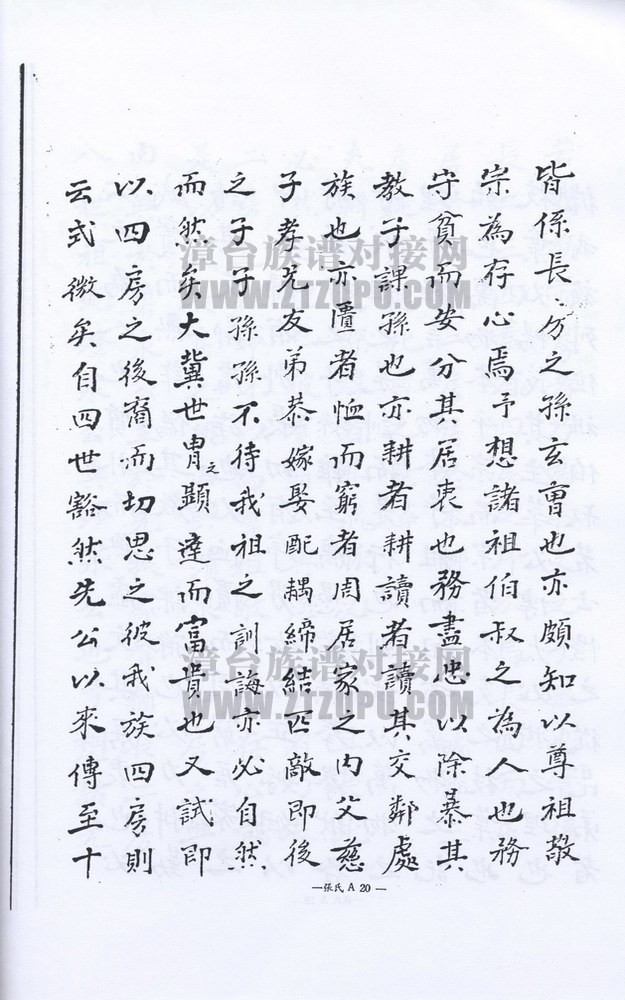 皆係長房之孫玄曾也亦頗知以尊祖敬
宗為存心焉予想諸祖伯叔之為人也務
守貧而安分其居衷也務盡忠以除暴其
教子課孫也亦耕者耕讀者讀其交鄰處
族也亦匱者恤而窮者周居家之內父慈
子孝兄友弟恭嫁娶配耦締結匹敵即後
之子子孫孫不待我祖之訓誨亦必自然
而然矣大冀世冑之顯達而富貴也又試即
以四房之後裔而切思之彼我族四房則
云式微矣自四世豁然先公以來傳至十
漳台族谱对接网
WWW.ZTZUPU.COM
漳台族谱对接网
WWW.ZTZUPU.COM
—張氏 A 20—